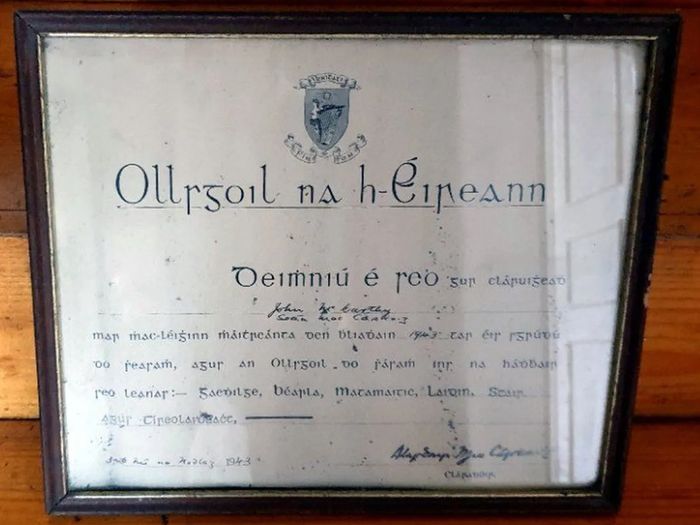 Ollsgoil na h-Éireann
Deiṁniú é seo gur cláruiġeaḋ
John McCarthy
Seán Mac Cárthaig
mar ṁac-léiġinn ṁáitreánta den ḃliaḋain 1943 tar éis sgrúdú
do ṡeasaṁ, agus an Ollsgoil do ṡásaṁ ins na háḋḃair
seo leanas:— Gaeḋilge, Béarla, Matamaitic, Laidin, Stair
agus Tíreolaiḋeaċt,
na Nodlag 1943
Cláraṫóir